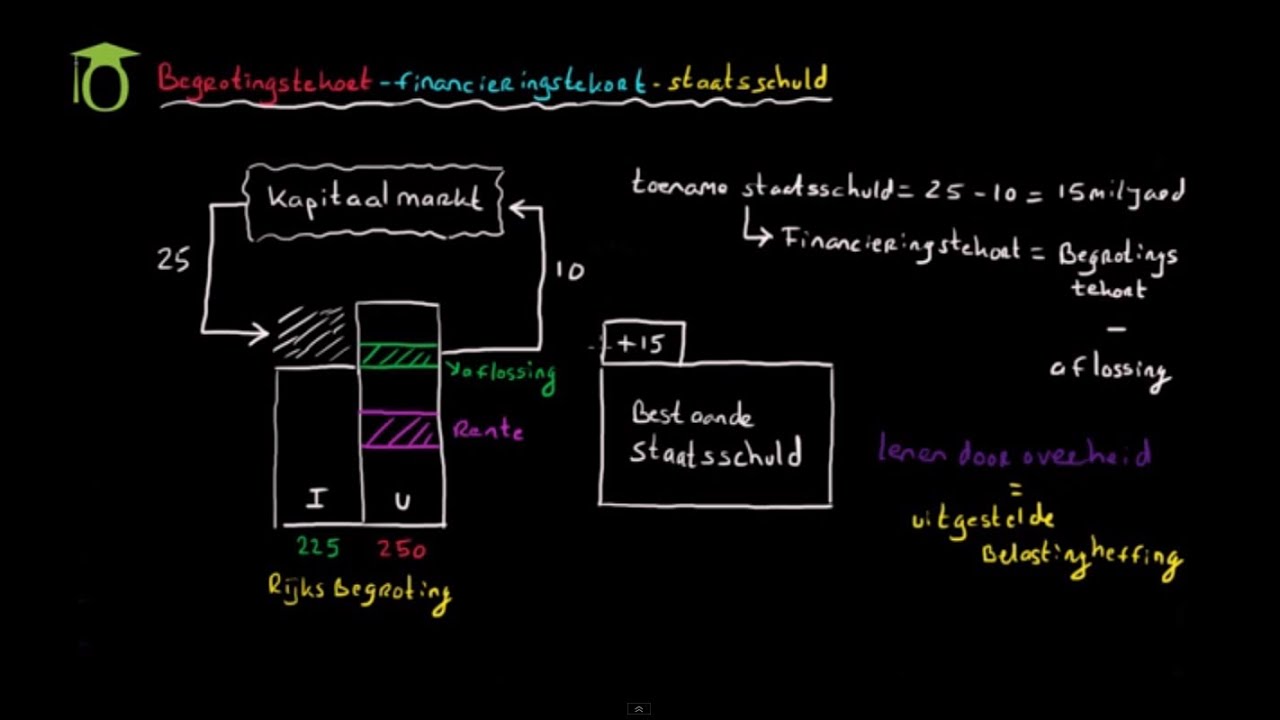 10
Begrotingstekort - financieringstekort - staatsschuld
Kapitaalmarkt
25
10
toename staatsschuld = 25 - 10 = 15 miljard
↳ Financieringstekort = Begrotings
tekort
-
aflossing
+15
aflossing
Rente
Bestaande
Staatsschuld
lenen door overheid
=
uitgestelde
Belastingheffing
I
U
225
250
Rijks Begroting